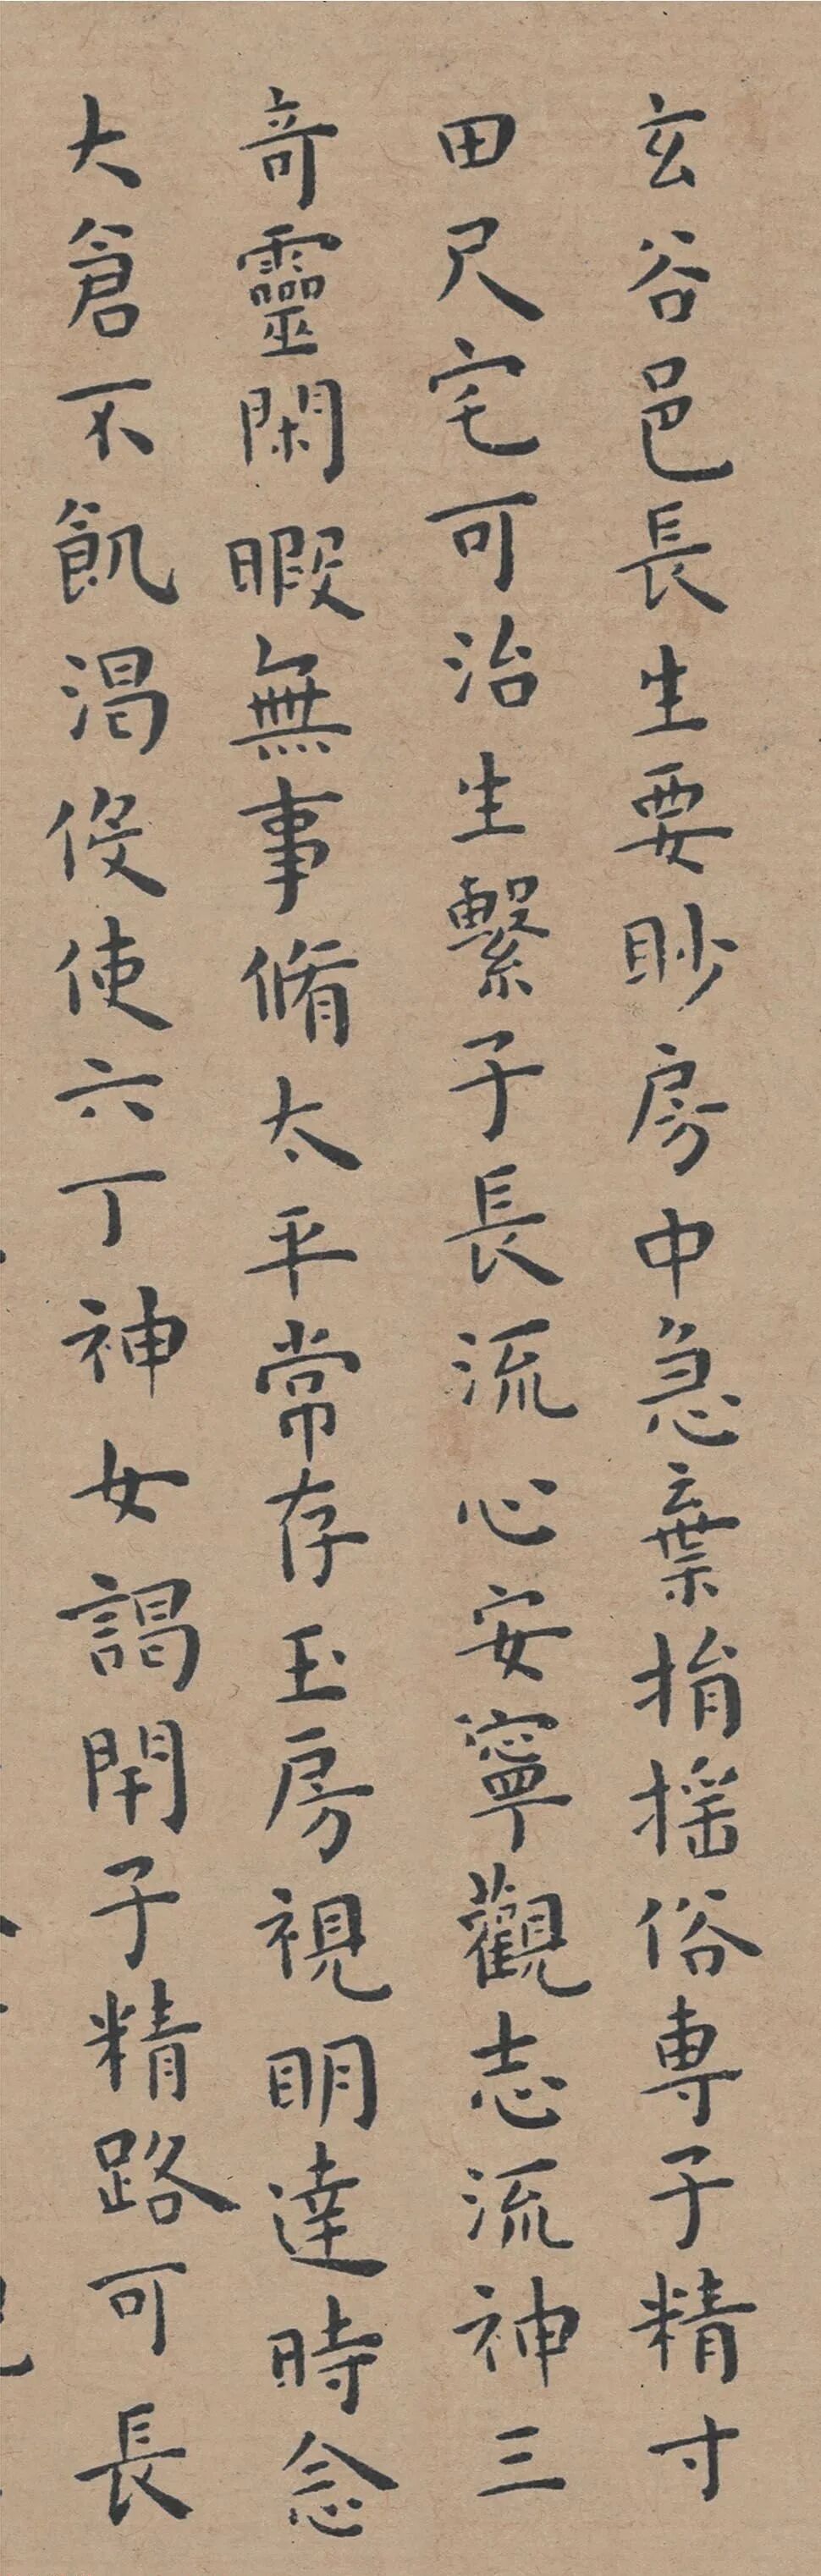 玄谷邑長生要眇房中急棄捐揺俗専子精寸
田尺宅可治生繫子長流心安寧觀志流神三
奇靈閑暇無事脩太平常存玉房視明達時念
大倉不飢渇伇使六丁神女謁開子精路可長